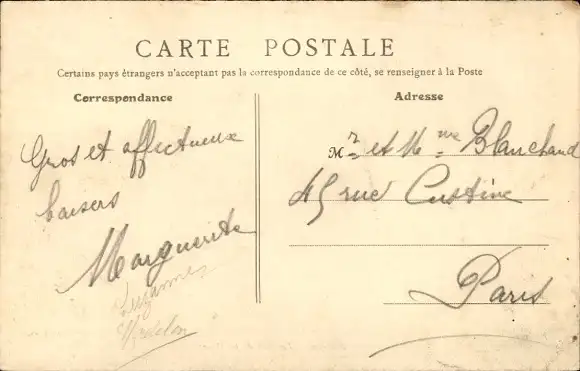 CARTE POSTALE
Certains pays étrangers n'acceptant pas la correspondance de ce côté, se renseigner à la Poste
Correspondance
Gros et affectueux
baisers
Marguerite
Suzanne
Adresse
Mr et Mme Blanchard
45 rue Custine
Paris